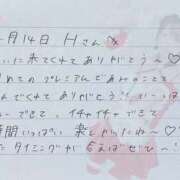 月14日 Hさん
いに来てくれてありがとう〜♡
めてのプレミアムであんのことて
くれてありがとう
ーできて、イチャイチャできて
時間いっぱい楽しかったね〜♡
タイミングが合えばぜひ